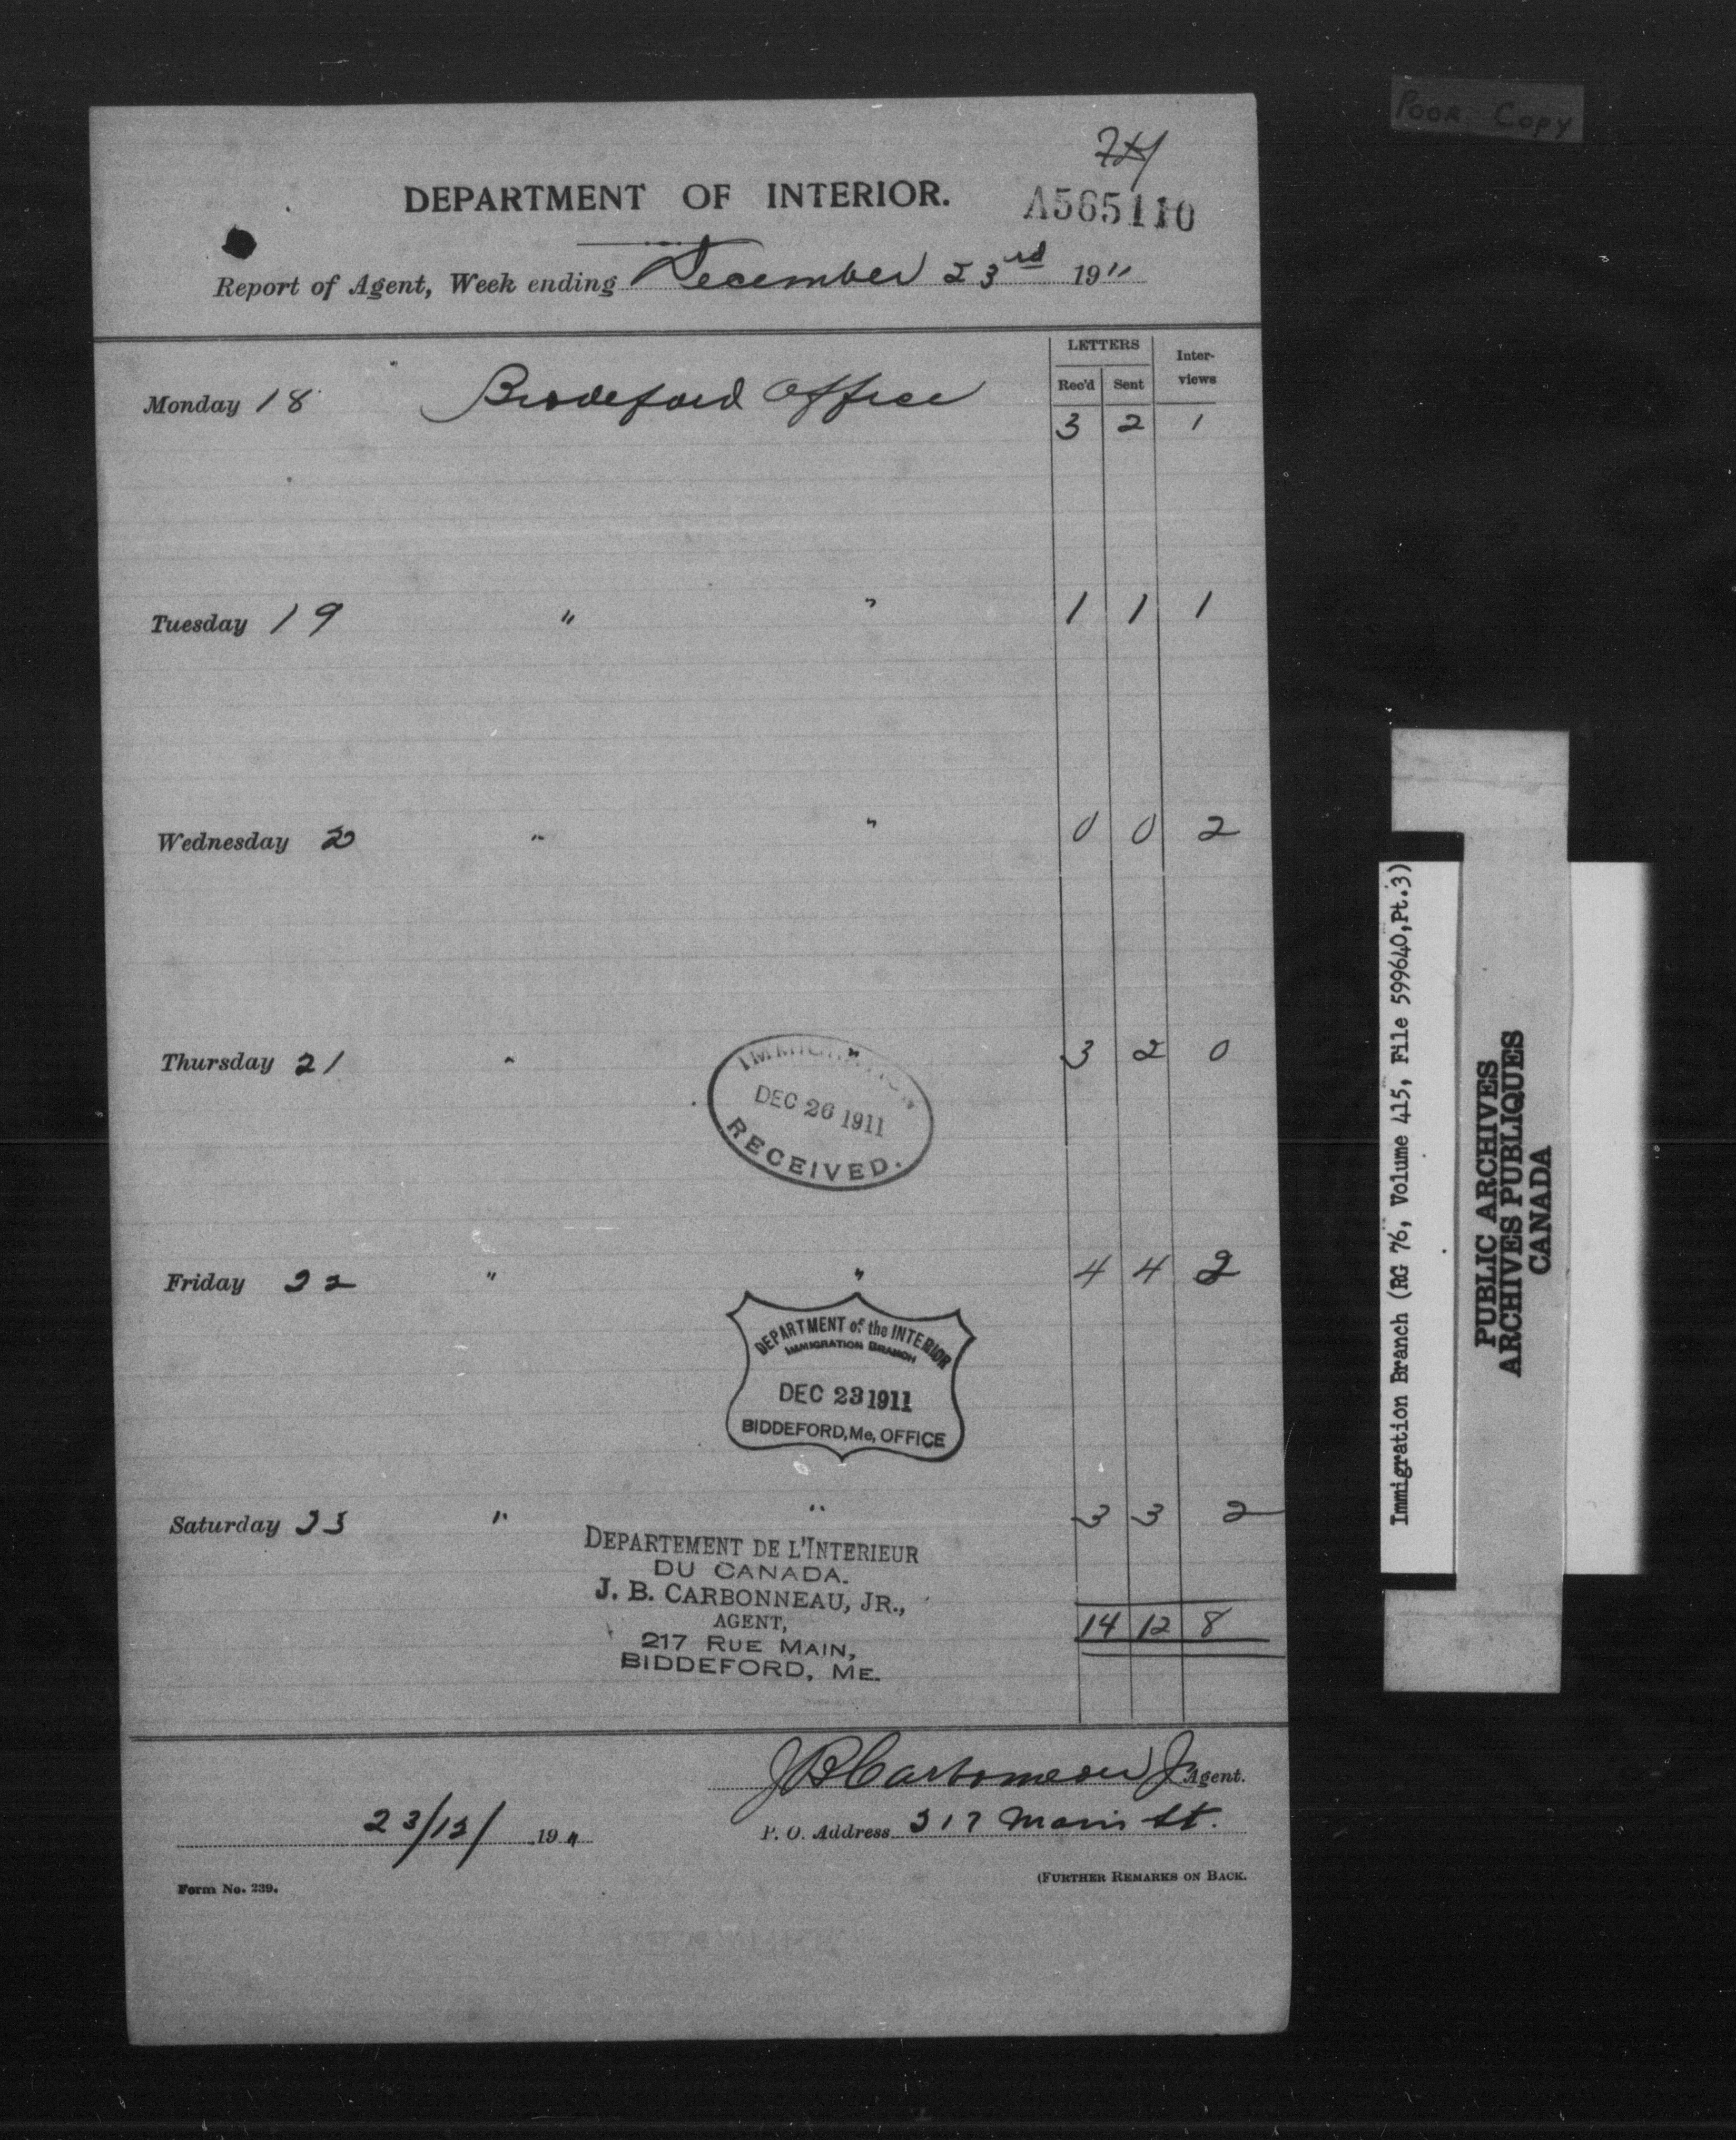 Poor Copy
DEPARTMENT OF INTERIOR.
A565110
Report of Agent, Week ending December 23rd 1911
LETTERS
Rec'd Sent Inter-views
Monday 18 Biddeford Office 3 2 1
Tuesday 19 " " 1 1 1
Wednesday 20 " " 0 0 2
Thursday 21 " " 3 2 0
IMMIGRATION
DEC 26 1911
RECEIVED.
Friday 22 " " 4 4 2
DEPARTMENT of the INTERIOR
IMMIGRATION BRANCH
DEC 23 1911
BIDDEFORD, Me, OFFICE
Saturday 23 " " 3 3 2
DEPARTEMENT DE L'INTERIEUR
DU CANADA.
J. B. CARBONNEAU, JR.,
AGENT,
217 RUE MAIN,
BIDDEFORD, ME.
14 12 8
JB Carbonneau Jr Agent.
23/12/ 1911
P. O. Address 217 Main St.
Form No. 239.
(FURTHER REMARKS ON BACK.
Immigration Branch (RG 76, Volume 415, File 599640, Pt.3)
PUBLIC ARCHIVES
ARCHIVES PUBLIQUES
CANADA